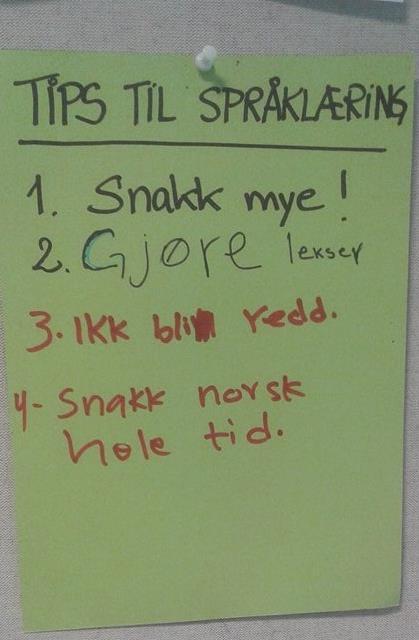 TIPS TIL SPRÅKLÆRING
1. Snakk mye!
2. Gjøre lekser
3. Ikk bli redd.
4- Snakk norsk
hole tid.